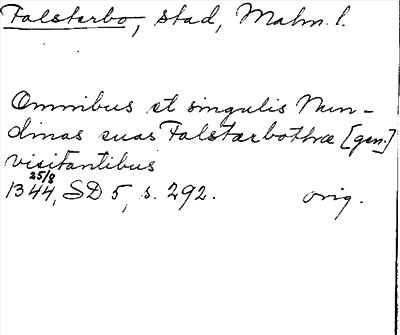 Falsterbo, stad, Malm. l.
Omnibus et singulis Nun-
dinas suas Falstærbothræ [gen.]
visitantibus
1344 25/8, SD 5, s. 292. orig.